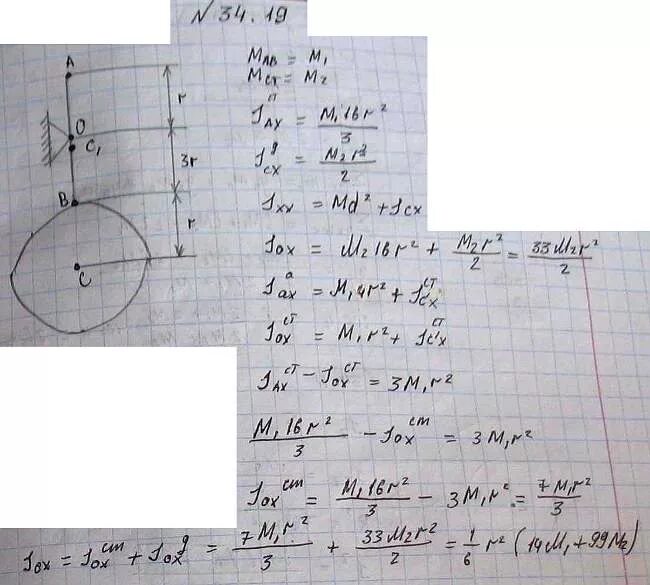 N 34.19
A
r
O
C₁
3r
B
r
C
M_AB = M₁
M_ст = M₂
J_Ax^ст = M₁16r²/3
J_cx^g = M₂r²/2
J_xx = Md² + J_cx
J_ox = M₂16r² + M₂r²/2 = 33M₂r²/2
J_ax^a = M₁4r² + J_c'x^ст
J_ox^ст = M₁r² + J_c'x^ст
J_Ax^ст - J_ox^ст = 3M₁r²
M₁16r²/3 - J_ox^cm = 3M₁r²
J_ox^cm = M₁16r²/3 - 3M₁r² = 7M₁r²/3
J_ox = J_ox^cm + J_ox^g = 7M₁r²/3 + 33M₂r²/2 = 1/6 r² (14M₁ + 99M₂)